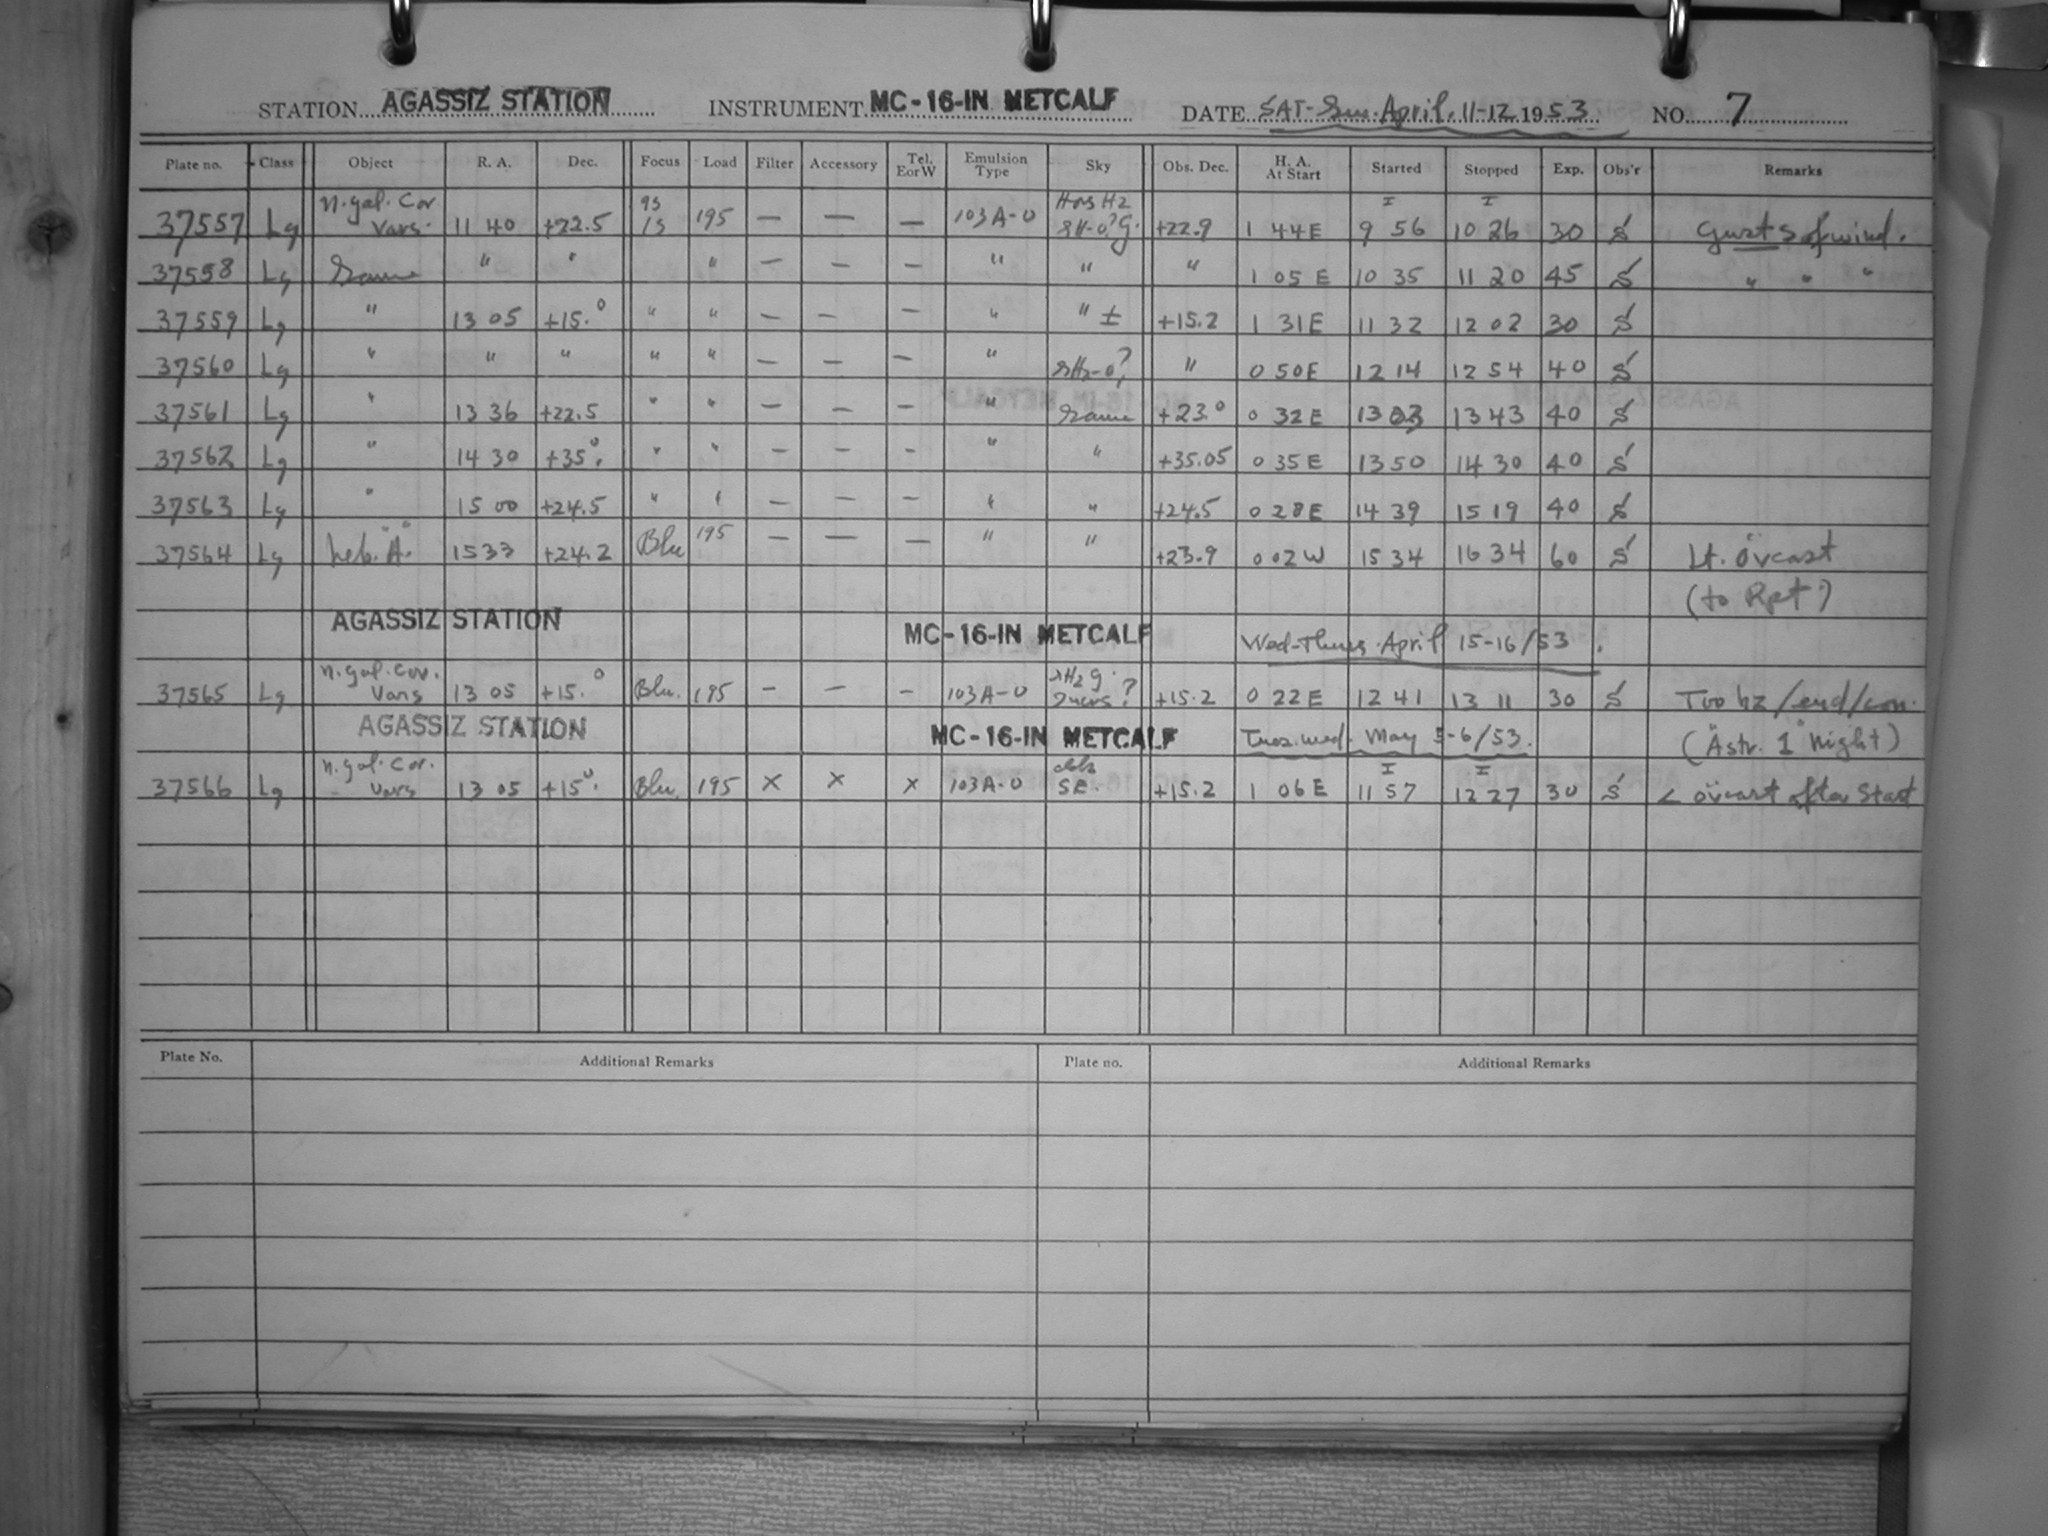 STATION AGASSIZ STATION INSTRUMENT MC-16-IN METCALF DATE SAT-Sun. April. 11-12 1953 NO. 7
Plate no. Class Object R. A. Dec. Focus Load Filter Accessory Tel. E or W Emulsion Type Sky Obs. Dec. H. A. At Start Started Stopped Exp. Obs'r Remarks
37557 Lg n. gal. Cor Vars. 11 40 +22.5 93 /s 195 — — — 103A-O +22.9 1 44E 9 56 10 26 30 S Gusts of wind.
37558 Lg Same " " " — — — " " " 1 05 E 10 35 11 20 45 S " " "
37559 Lg " 13 05 +15.° " " — — — " " ± +15.2 1 31E 11 32 12 02 30 S
37560 Lg " " " " " — — — " sHz-o? " 0 50E 12 14 12 54 40 S
37561 Lg " 13 36 +22.5 " " — — — " Same +23.° 0 32E 13 03 13 43 40 S
37562 Lg " 14 30 +35°. " " — — — " " +35.05 0 35E 13 50 14 30 40 S
37563 Lg " 15 00 +24.5 " " — — — " " +24.5 0 28E 14 39 15 19 40 S
37564 Lg neb. "A". 15 33 +24.2 Blu 195 — — — " " +23.9 0 02W 15 34 16 34 60 S Lt. ovcast
(to Rpt.)
AGASSIZ STATION MC-16-IN METCALF Wed-Thurs. April 15-16/53.
37565 Lg n. gal. Cor. Vars 13 05 +15.° Blu. 195 — — — 103A-O +15.2 0 22E 12 41 13 11 30 S Too hz/end/con.
AGASSIZ STATION MC-16-IN METCALF Tues. Wed. May 5-6/53. (Astr. 1 "night")
37566 Lg n. gal. Cor. Vars 13 05 +15°. Blu. 195 × × × 103A-O SE. +15.2 1 06E 11 57 12 27 30 S < ovcast after Start
Plate No. Additional Remarks Plate no. Additional Remarks